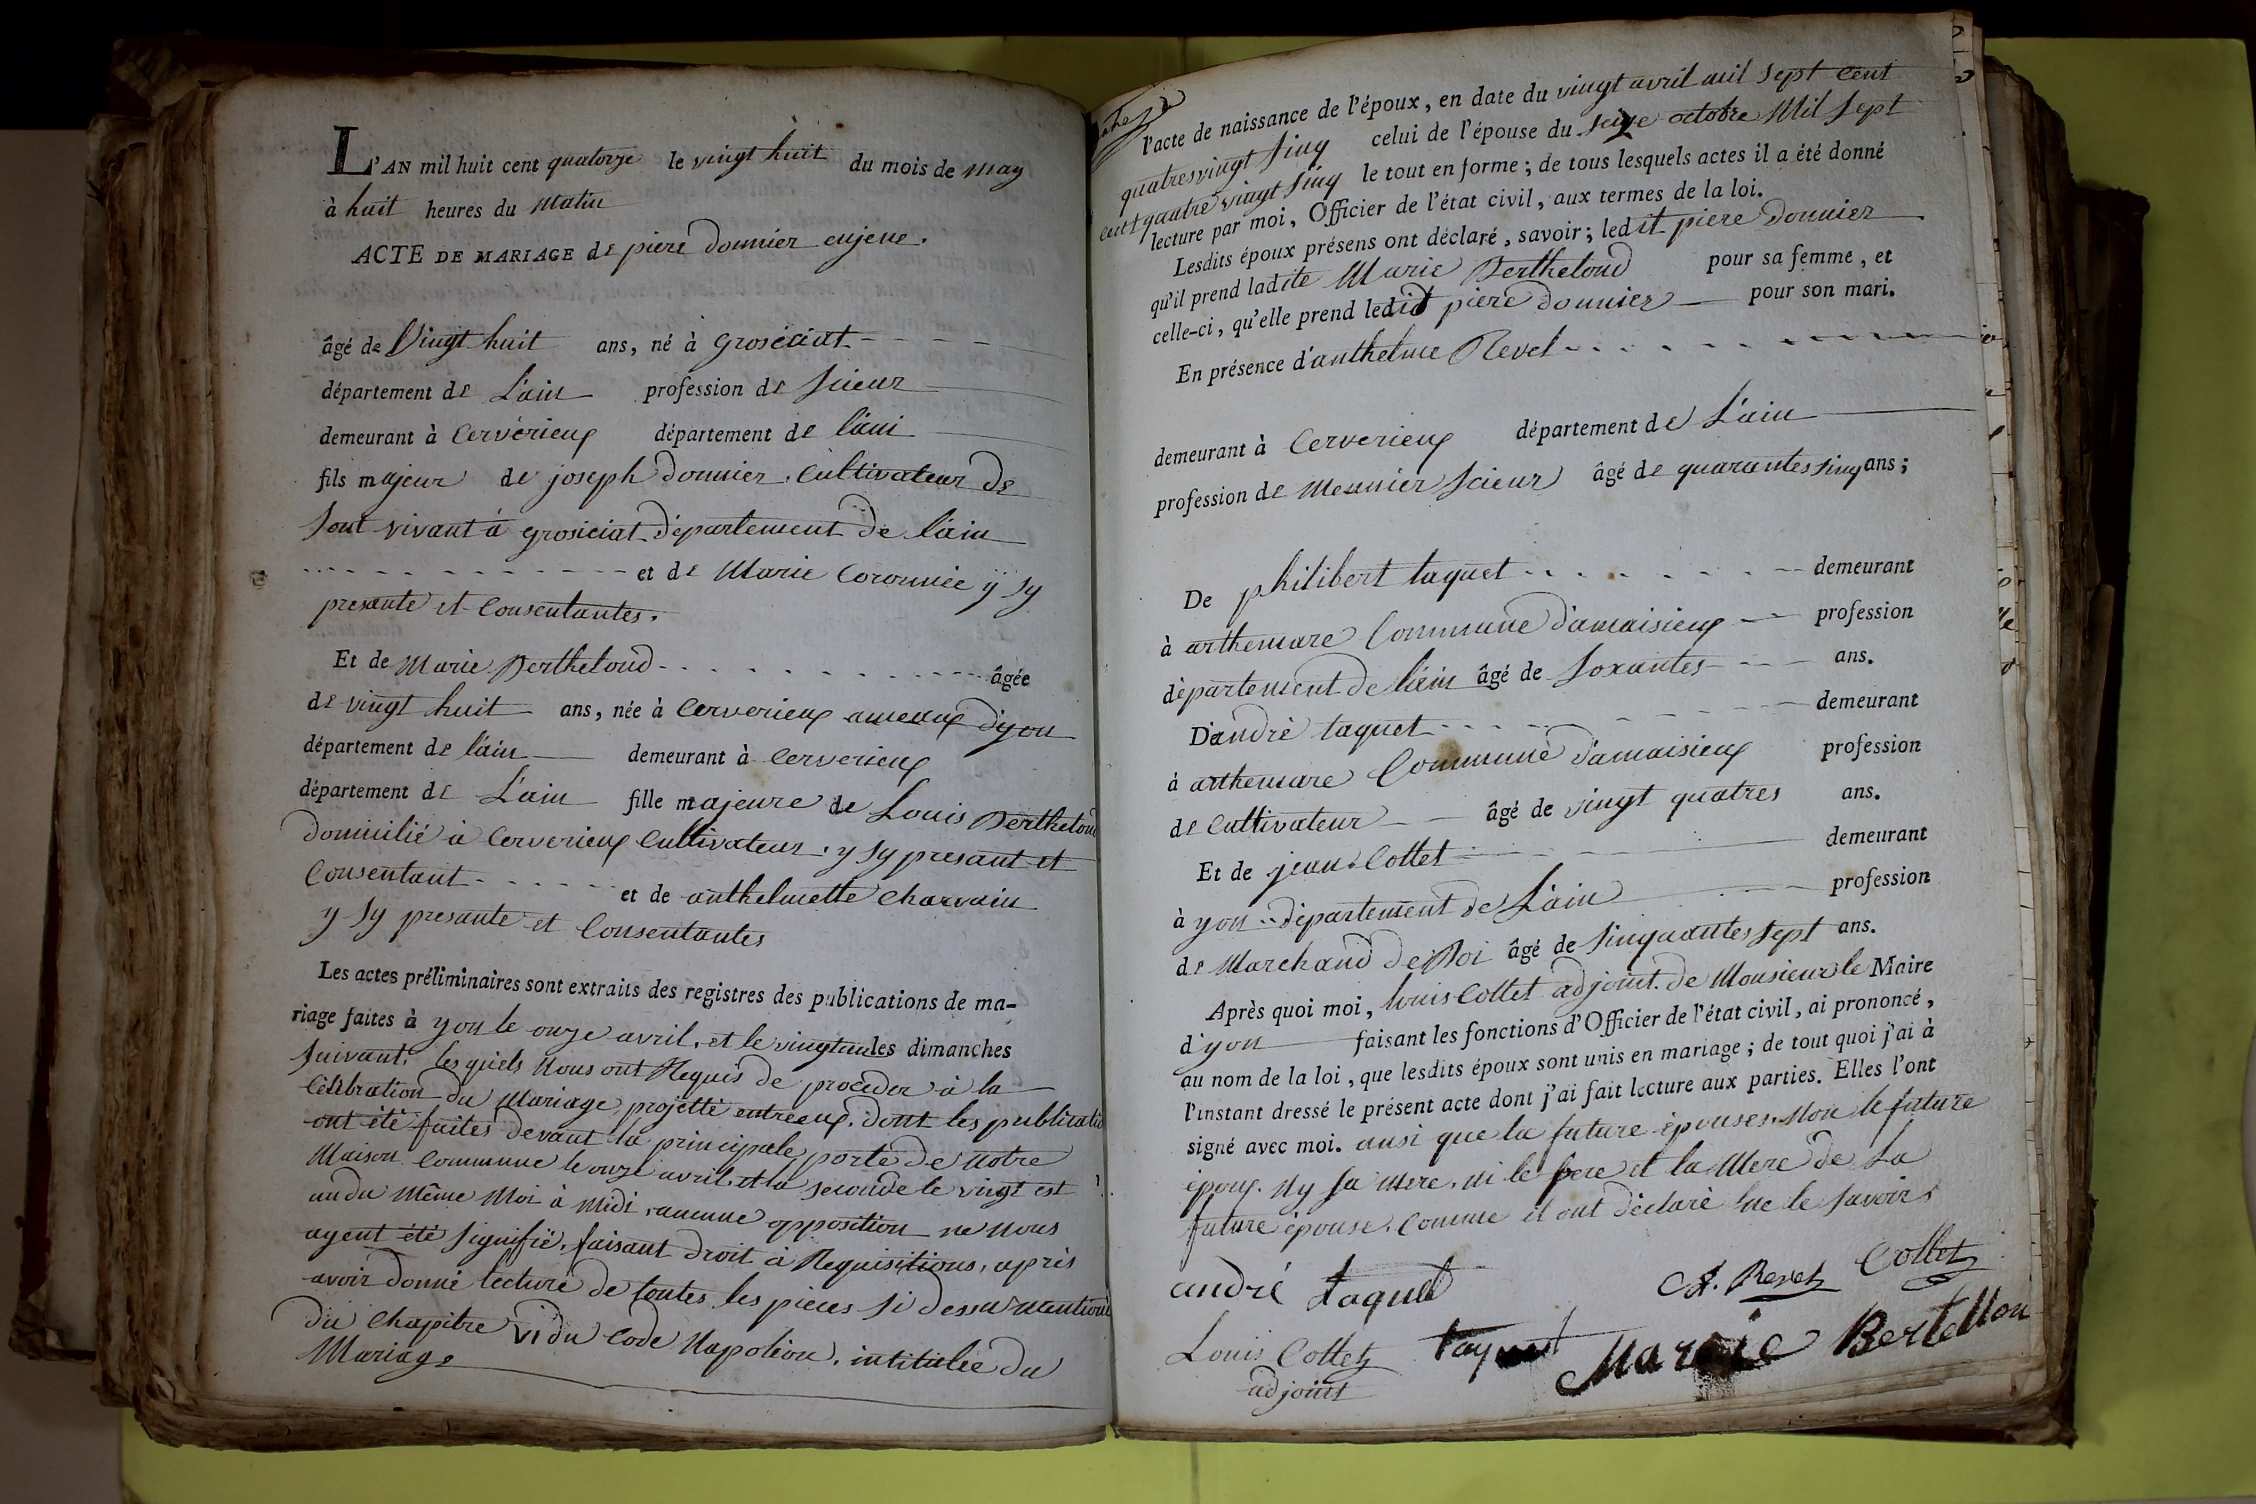 L'AN mil huit cent quatorze le vingt huit du mois de may
à huit heures du matin
ACTE DE MARIAGE de piere donnier eujene.
âgé de Vingt huit ans, né à grosiciat
département de L'ain profession de scieur
demeurant à Cerverieux département de l'ain
fils majeur de joseph donnier. Cultivateur de
sont vivant à grosiciat département de l'ain
et de Marie Coronnée y sy
presante et Consentantes.
Et de Marie Bertheloud âgée
de vingt huit ans, née à Cerverieux ameaux d'yon
département de l'ain demeurant à Cerverieux
département de L'ain fille majeure de Louis Bertheloud
domicilié à Cerverieux Cultivateur. y sy presant et
Consentant et de anthelmette Charvain
y sy presante et Consentantes
Les actes préliminaires sont extraits des registres des publications de ma-
riage faites à yon le onze avril, et le vingt un les dimanches
suivant, lesquels nous ont Requis de proceder à la
Célébration du Mariage projetté entreeux. dont les publicatio
ont été faites devant la principale porte de notre
Maison Commune le onze avril, et la seconde le vingt est
un du même Moi à midi, aucunne opposition ne nous
ayent été signifié, faisant droit à Requisitions, après
avoir donné lecture de toutes les pièces si dessu mentioné
du Chapitre VI du Code Napoléon. intitulée du
Mariage
l'acte de naissance de l'époux, en date du vingt avril mil sept cent
quatresvingt sinq celui de l'épouse du seize octobre Mil sept
cent quatre vingt sinq le tout en forme ; de tous lesquels actes il a été donné
lecture par moi, Officier de l'état civil, aux termes de la loi.
Lesdits époux présens ont déclaré, savoir ; ledit piere Donnier
qu'il prend ladite Marie Bertheloud pour sa femme, et
celle-ci, qu'elle prend ledit piere donnier pour son mari.
En présence d'anthelme Revel
demeurant à Cerverieux département de L'ain
profession de Meunier scieur âgé de quarantes sinq ans ;
De philibert taquet demeurant
à arthemare Commune d'amaisieux profession
département de l'ain âgé de soxantes ans.
D'andré taquet demeurant
à arthemare Commune d'amaisieux profession
de Cultivateur âgé de vingt quatres ans.
Et de jean Collet demeurant
à yon département de L'ain profession
de Marchand de Boi âgé de sinquantes sept ans.
Après quoi moi, louis Collet adjoint de Monsieur le Maire
d'yon faisant les fonctions d'Officier de l'état civil, ai prononcé,
au nom de la loi, que lesdits époux sont unis en mariage ; de tout quoi j'ai à
l'instant dressé le présent acte dont j'ai fait lecture aux parties. Elles l'ont
signé avec moi. ausi que la future épouses, Mon le future
époux. Ny sa mere, ni le pere et la Mere de La
future épouse, Comme il ont déclaré ne le savoir
andré taquet A. Revel Collet
Louis Collet taquet Marie Bertellon
adjoint